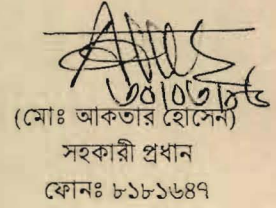 ৩০/০৩/১৮
(মোঃ আকতার হোসেন)
সহকারী প্রধান
ফোনঃ ৮১৮১৬৪৭